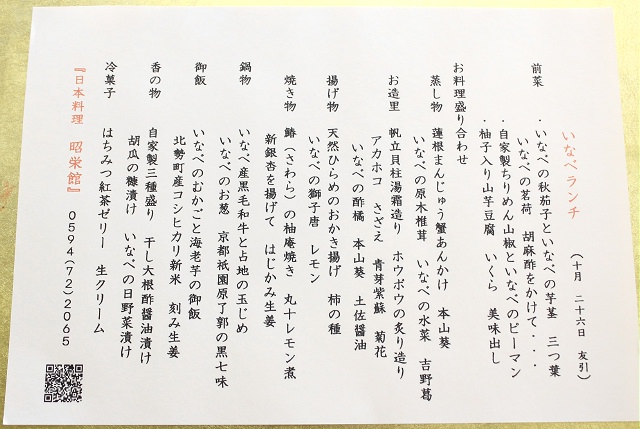 いなべランチ
（十月 二十六日 友引）
前菜 ・いなべの秋茄子といなべの芋茎 三つ葉
いなべの茗荷 胡麻酢をかけて・・・
・自家製ちりめん山椒といなべのピーマン
・柚子入り山芋豆腐 いくら 美味出し
お料理盛り合わせ
蒸し物 蓮根まんじゅう蟹あんかけ 本山葵
いなべの原木椎茸 いなべの水菜 吉野葛
お造里 帆立貝柱湯霜造り ホウボウの炙り造り
アカホコ さざえ 青芽紫蘇 菊花
いなべの酢橘 本山葵 土佐醤油
揚げ物 天然ひらめのおかき揚げ 柿の種
いなべの獅子唐 レモン
焼き物 鰆（さわら）の柚庵焼き 丸十レモン煮
新銀杏を揚げて はじかみ生姜
鍋物 いなべ産黒毛和牛と占地の玉じめ
いなべのお葱 京都祇園原了郭の黒七味
御飯 いなべのむかごと海老芋の御飯
北勢町産コシヒカリ新米 刻み生姜
香の物 自家製三種盛り 干し大根酢醤油漬け
胡瓜の糠漬け いなべの日野菜漬け
冷菓子 はちみつ紅茶ゼリー 生クリーム
『日本料理 昭栄館』 0594(72)2065